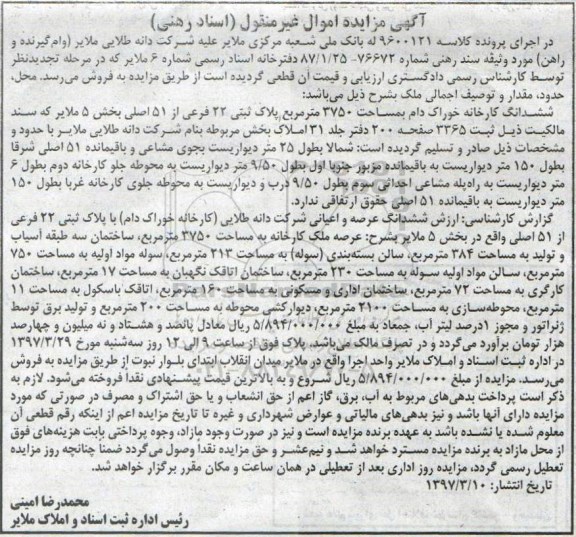 آگهی مزایده اموال غیرمنقول (اسناد رهنی)
در اجرای پرونده کلاسه ۹۶۰۰۱۲۱ له بانک ملی شعبه مرکزی ملایر علیه شرکت دانه طلایی ملایر (وام‌گیرنده و
راهن) مورد وثیقه سند رهنی شماره ۷۶۶۷۲- ۸۷/۱/۲۵ دفترخانه اسناد رسمی شماره ۶ ملایر که در مرحله تجدیدنظر
توسط کارشناس رسمی دادگستری ارزیابی و قیمت آن قطعی گردیده است از طریق مزایده به فروش می‌رسد. محل،
حدود، مقدار و توصیف اجمالی ملک بشرح ذیل می‌باشد:
ششدانگ کارخانه خوراک دام بمساحت ۳۷۵۰ مترمربع پلاک ثبتی ۲۲ فرعی از ۵۱ اصلی بخش ۵ ملایر که سند
مالکیت ذیل ثبت ۳۳۶۵ صفحه ۲۰۰ دفتر جلد ۳۱ املاک بخش مربوطه بنام شرکت دانه طلایی ملایر با حدود و
مشخصات ذیل صادر و تسلیم گردیده است: شمالا بطول ۲۵ متر دیواریست بجوی مشاعی و باقیمانده ۵۱ اصلی شرقا
بطول ۱۵۰ متر دیواریست به باقیمانده مزبور جنوبا اول بطول ۹/۵۰ متر دیواریست به محوطه جلو کارخانه دوم بطول ۶
متر دیواریست به راه‌پله مشاعی احداثی سوم بطول ۹/۵۰ درب و دیواریست به محوطه جلوی کارخانه غربا بطول ۱۵۰
متر دیواریست به باقیمانده ۵۱ اصلی حقوق ارتفاقی ندارد.
گزارش کارشناسی: ارزش ششدانگ عرصه و اعیانی شرکت دانه طلایی (کارخانه خوراک دام) با پلاک ثبتی ۲۲ فرعی
از ۵۱ اصلی واقع در بخش ۵ ملایر بشرح: عرصه ملک کارخانه به مساحت ۳۷۵۰ مترمربع، ساختمان سه طبقه آسیاب
و تولید به مساحت ۳۸۴ مترمربع، سالن بسته‌بندی (سوله) به مساحت ۲۱۳ مترمربع، سوله مواد اولیه به مساحت ۷۵۰
مترمربع، سالن مواد اولیه سوله به مساحت ۲۳۰ مترمربع، ساختمان اتاقک نگهبان به مساحت ۱۷ مترمربع، ساختمان
کارگری به مساحت ۷۲ مترمربع، ساختمان اداری و مسکونی به مساحت ۱۶۰ مترمربع، اتاقک باسکول به مساحت ۱۱
مترمربع، محوطه‌سازی به مساحت ۲۱۰۰ مترمربع، دیوارکشی محوطه به مساحت ۲۰۰ مترمربع و تولید برق توسط
ژنراتور و مجوز ۱درصد لیتر آب، جمعاد به مبلغ ۵/۸۹۴/۰۰۰/۰۰۰ ریال معادل پانصد و هشتاد و نه میلیون و چهارصد
هزار تومان برآورد می‌گردد و در تصرف مالک می‌باشد. پلاک فوق از ساعت ۹ الی ۱۲ روز سه‌شنبه مورخ ۱۳۹۷/۳/۲۹
در اداره ثبت اسناد و املاک ملایر واحد اجرا واقع در ملایر میدان انقلاب ابتدای بلوار نبوت از طریق مزایده به فروش
می‌رسد. مزایده از مبلغ ۵/۸۹۴/۰۰۰/۰۰۰ ریال شروع و به بالاترین قیمت پیشنهادی نقداً فروخته می‌شود. لازم به
ذکر است پرداخت بدهی‌های مربوط به آب، برق، گاز اعم از حق انشعاب و یا حق اشتراک و مصرف در صورتی که مورد
مزایده دارای آنها باشد و نیز بدهی‌های مالیاتی و عوارض شهرداری و غیره تا تاریخ مزایده اعم از اینکه رقم قطعی آن
معلوم شده یا نشده باشد به عهده برنده مزایده است و نیز در صورت وجود مازاد، وجوه پرداختی بابت هزینه‌های فوق
از محل مازاد به برنده مزایده مسترد خواهد شد و نیم‌عشر و حق مزایده نقداً وصول می‌گردد ضمناً چنانچه روز مزایده
تعطیل رسمی گردد، مزایده روز اداری بعد از تعطیلی در همان ساعت و مکان مقرر برگزار خواهد شد.
تاریخ انتشار: ۱۳۹۷/۳/۱۰
محمدرضا امینی
رئیس اداره ثبت اسناد و املاک ملایر